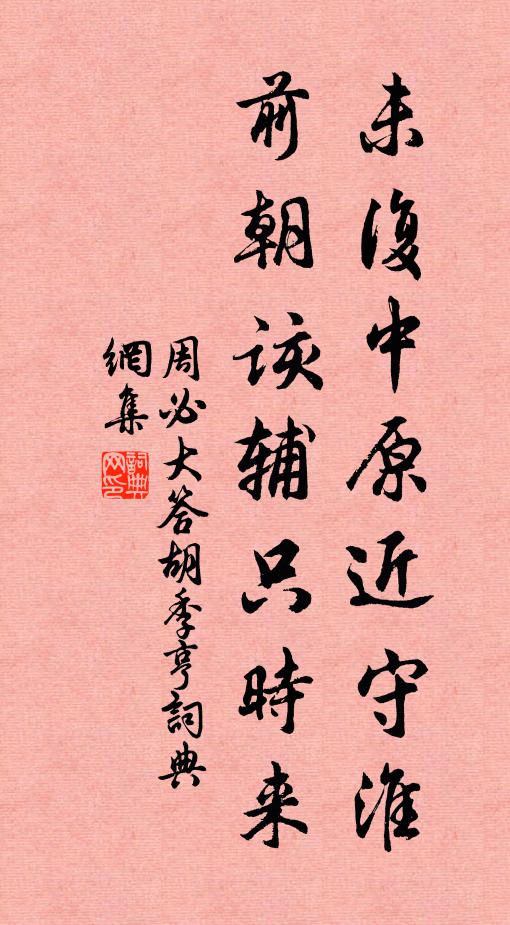 未復中原近守淮
前朝谈辅只時来
周必大答胡季亨詞典
網集
詞典网印